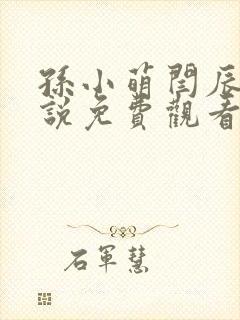 孫小萌閆辰
說免費觀看
石軍慧